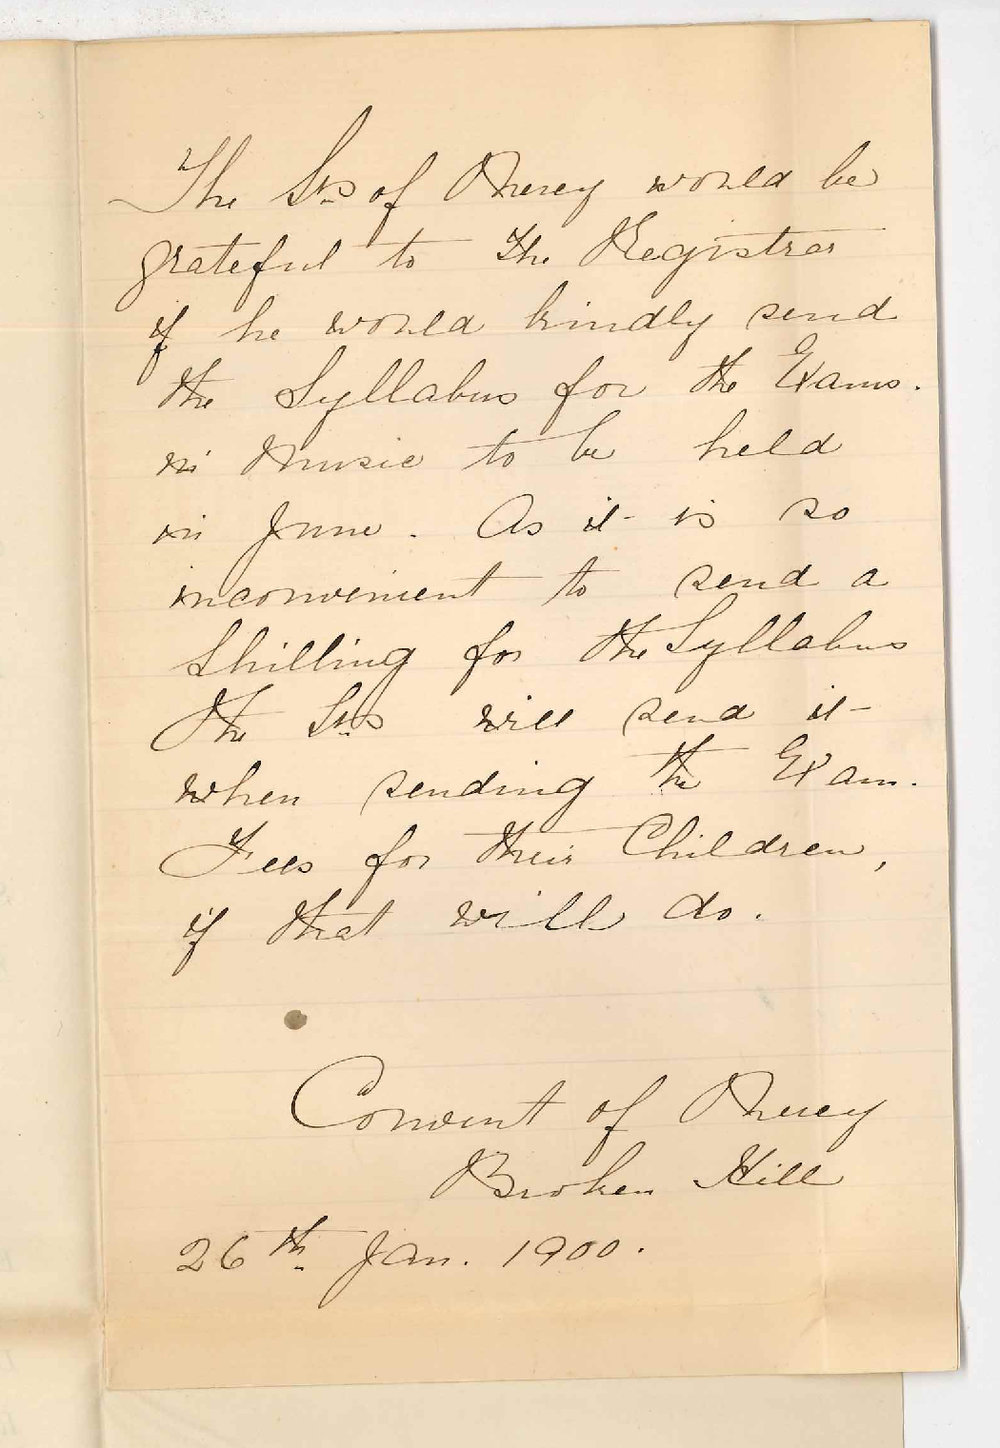 The Srs of Mercy would be
grateful to the Registrar
if he would kindly send
the Syllabus for the Exams.
in Music to be held
in June. As it is so
inconvenient to send a
shilling for the Syllabus
the Srs will send it
when sending the Exam.
Fees for their Children,
if that will do.
Convent of Mercy
Broken Hill
26th Jan. 1900.